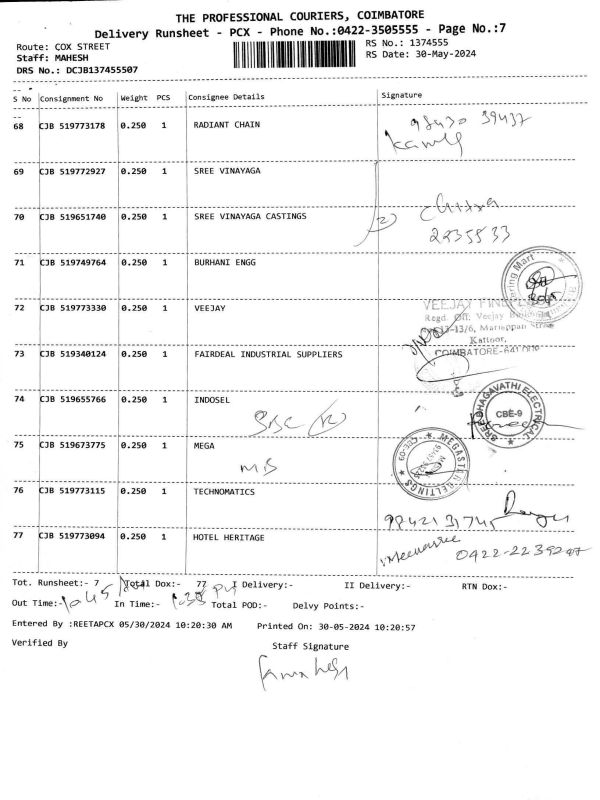 THE PROFESSIONAL COURIERS, COIMBATORE
Delivery Runsheet - PCX - Phone No.:0422-3505555 - Page No.:7
Route: COX STREET
RS No.: 1374555
Staff: MAHESH
RS Date: 30-May-2024
DRS No.: DCJB137455507
S No Consignment No Weight PCS Consignee Details Signature
68 CJB 519773178 0.250 1 RADIANT CHAIN
69 CJB 519772927 0.250 1 SREE VINAYAGA
70 CJB 519651740 0.250 1 SREE VINAYAGA CASTINGS
2235533
71 CJB 519749764 0.250 1 BURHANI ENGG
72 CJB 519773330 0.250 1 VEEJAY
VEEJAY
Regd. Off: Veejay
Kattoor,
COIMBATORE-641
73 CJB 519340124 0.250 1 FAIRDEAL INDUSTRIAL SUPPLIERS
74 CJB 519655766 0.250 1 INDOSEL
SREE BHAGAVATHI ELECTRICAL
CBE-9
75 CJB 519673775 0.250 1 MEGA
M.S
MEGASTER BELTINGS
76 CJB 519773115 0.250 1 TECHNOMATICS
9842131745
77 CJB 519773094 0.250 1 HOTEL HERITAGE
0422-2239247
Tot. Runsheet:- 7 Total Dox:- 77 I Delivery:- II Delivery:- RTN Dox:-
Out Time:- In Time:- Total POD:- Delvy Points:-
Entered By :REETAPCX 05/30/2024 10:20:30 AM Printed On: 30-05-2024 10:20:57
Verified By
Staff Signature